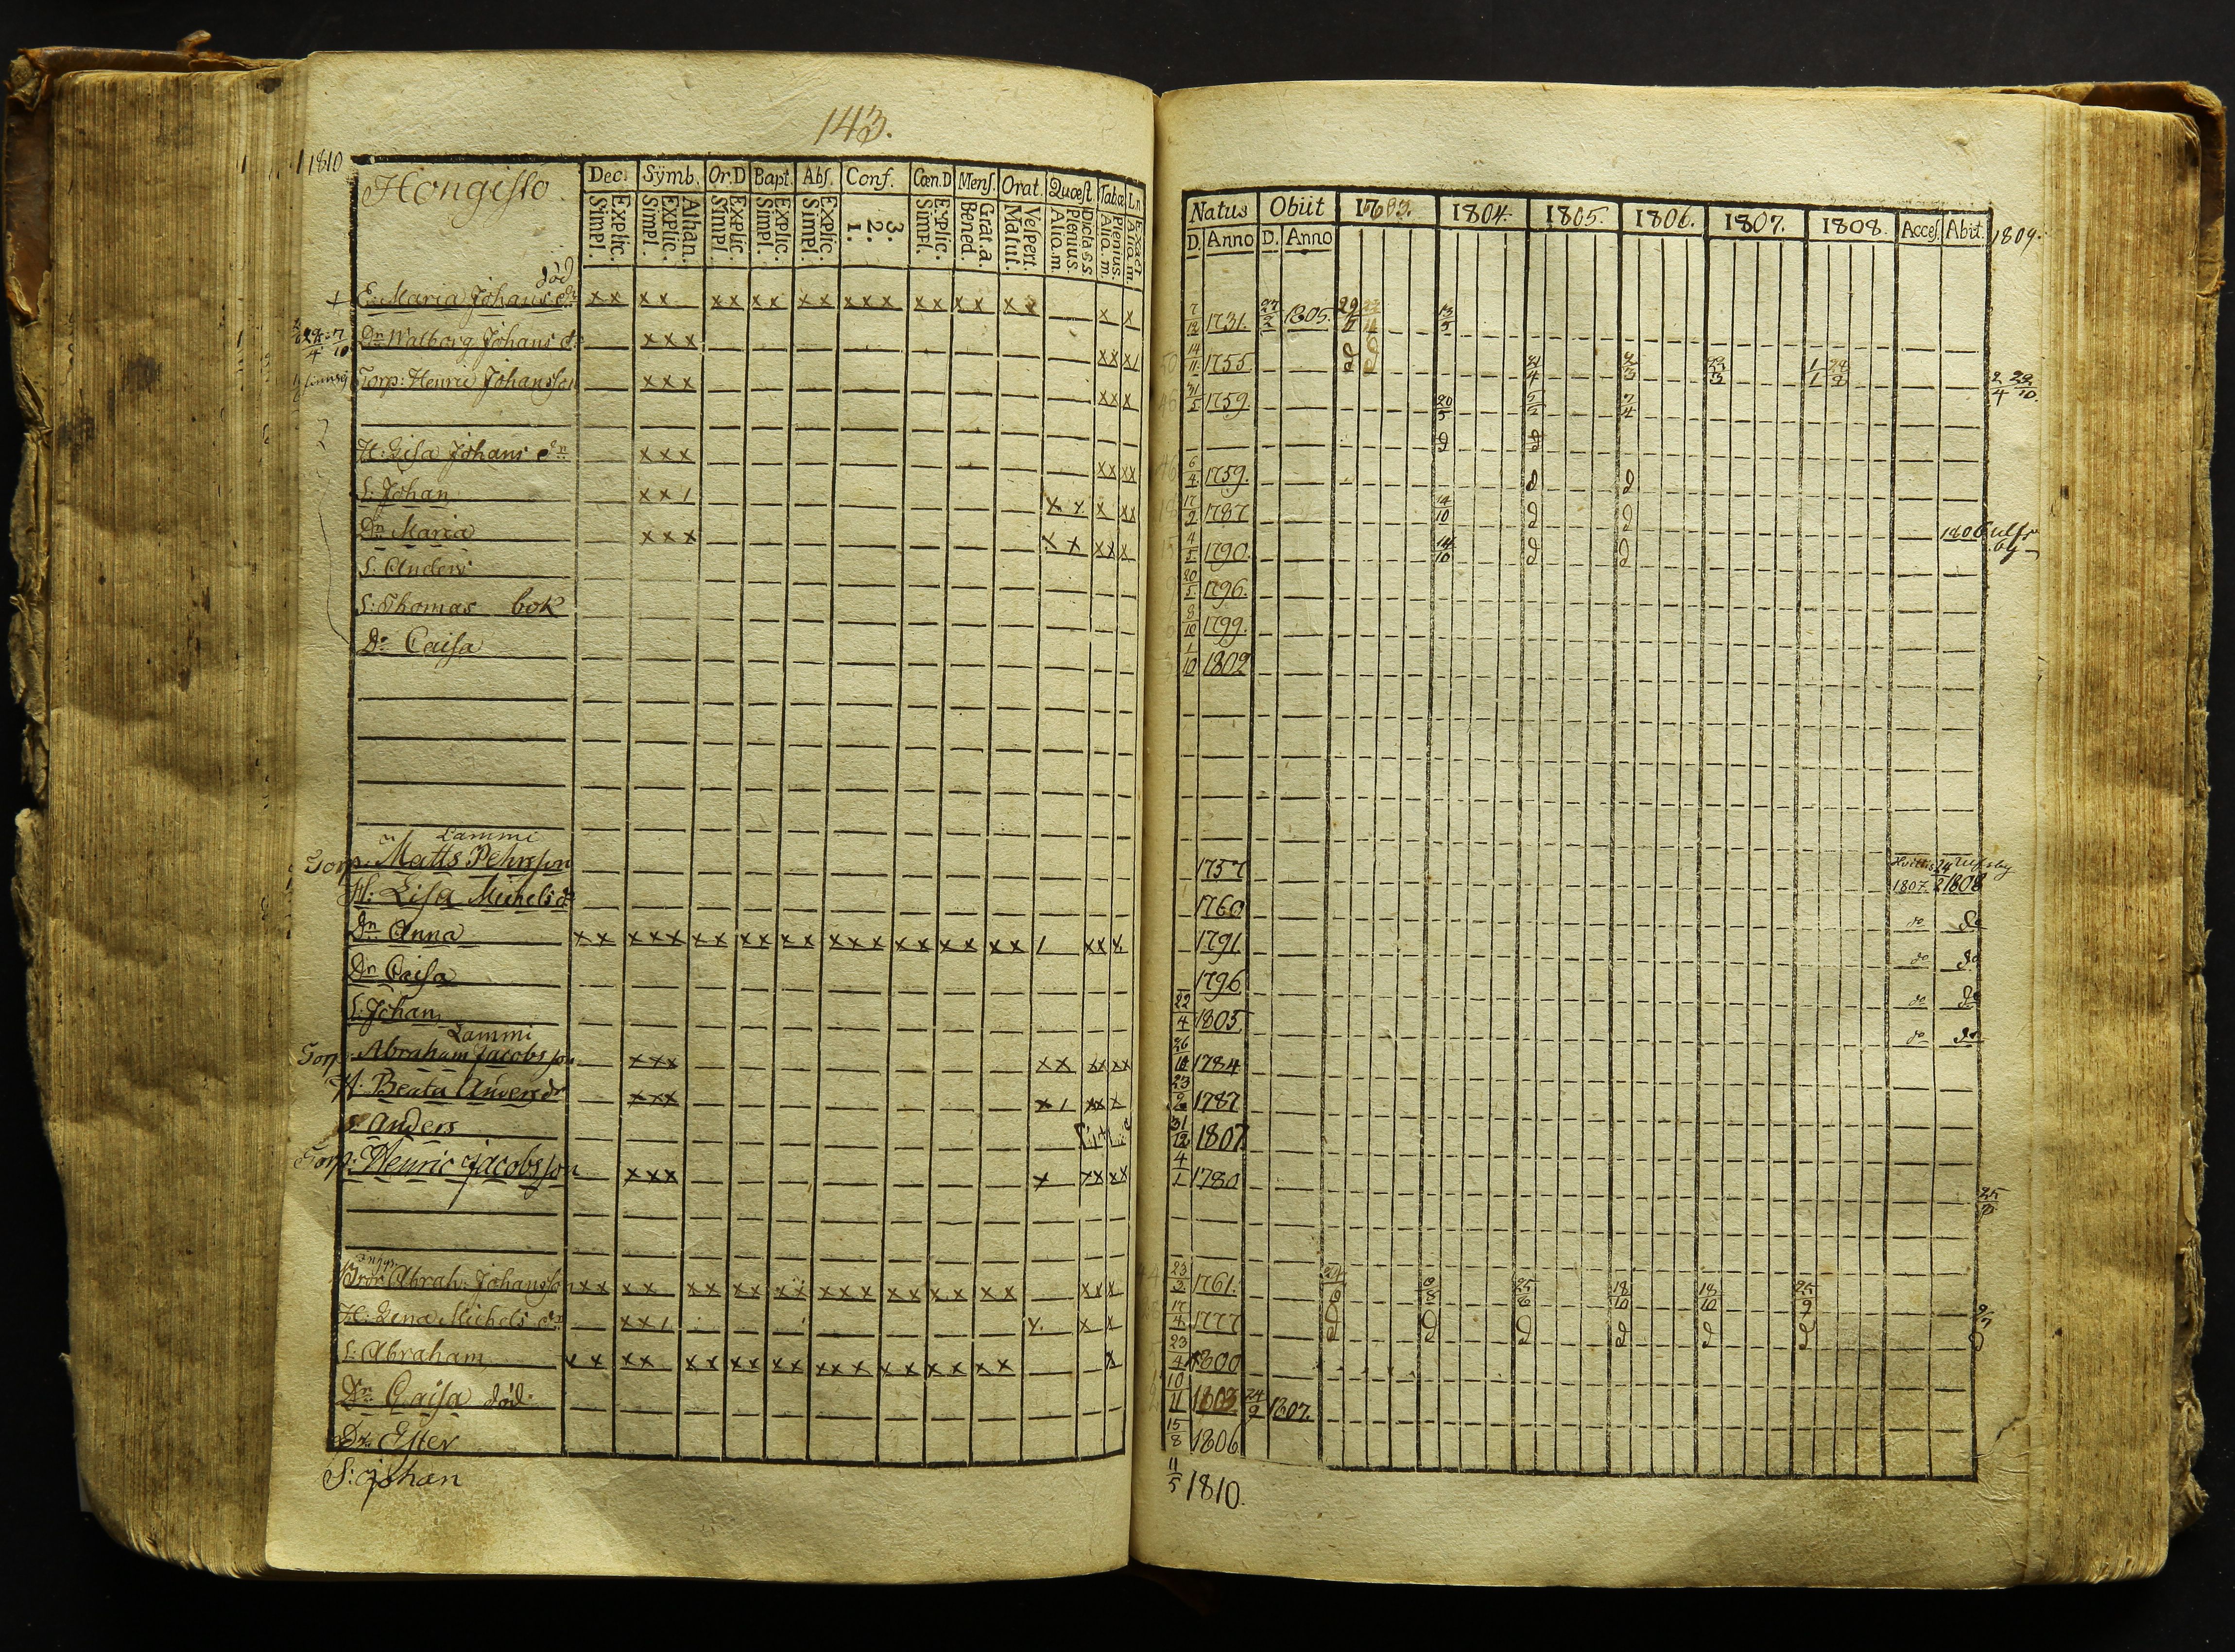 143.
1810
Hongisto.
Dec. Symb. Or.D Bapt. Abs. Conf. Cœn.D Mens. Orat. Quæst. Tabæ Ln
Explic. Simpl. Athan. Explic. Simpl. Explic. Simpl. Explic. Simpl. Explic. Simpl. 3. 2. 1. Explic. Simpl. Grat.a. Bened. Vespert. Matut. Dicta SS Plenius. Alio.m. Plenius. Alio.m. Exact Alio.m.
död
+ E: Maria Johans dr xx xx xx xx xx xxx xx xx xx x x
Dr Walborg Johans d: xxx xx x1
Torp: Henric Johansson xxx xx x
H: Lisa Johans dr xxx xx xx
S: Johan xx1 xx x xx
Dr Maria xxx xx xx x
S: Anders
S: Thomas bok
Dr Caisa
Lammi
Torp: Matts Pehrsson
H: Lisa Michels dr
Dr Anna xx xxx xx xx xx xxx xx xx xx 1 xx x
Dr Caisa
S: Johan
Lammi
Torp: Abraham Jacobsson xxx xx xx xx
H: Beata Anders dr xxx x1 xx x
S: Anders
Torp: Henric Jacobsson xxx x xx xx
Bror Abrah: Johansson xx xx xx xx xx xxx xx xx xx xx x
H: Lena Michels dr xx1 x x x
S: Abraham xx xx xx xx xx xxx xx xx xx x
Dr Caisa död.
Dr Ester
S: Johan
Natus Obiit 1803. 1804. 1805. 1806. 1807. 1808. Acces. Abit. 1809.
D. Anno D. Anno
7/12 1731. 27/2 1805. 13/5
14/11 1755 4/4 2/3 22/3 1/1 28/8 2/4 29/10.
31/5 1759. 20/5 5/2 7/4
6/4 1759.
17/2 1787 14/10
4/5 1790. 14/10 1806 Ulfs by
20/5 1796.
8/10 1799.
1/10 1802
1757 1807. 24/2 1808 Ulfsby
1760 do do
1791 do do
1796 do do
22/4 1805 do do
26/10 1784
23/2 1787
31/12 1807
4/1 1780
23/3 1761. 25/6 18/10 18/10 25/9
17/4 1777
23/4 1800
10/11 1803 24/9 1807.
15/8 1806
11/5 1810.